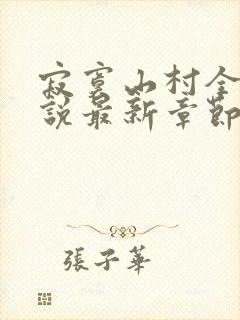 寂寞山村全
說最新章節
張子華